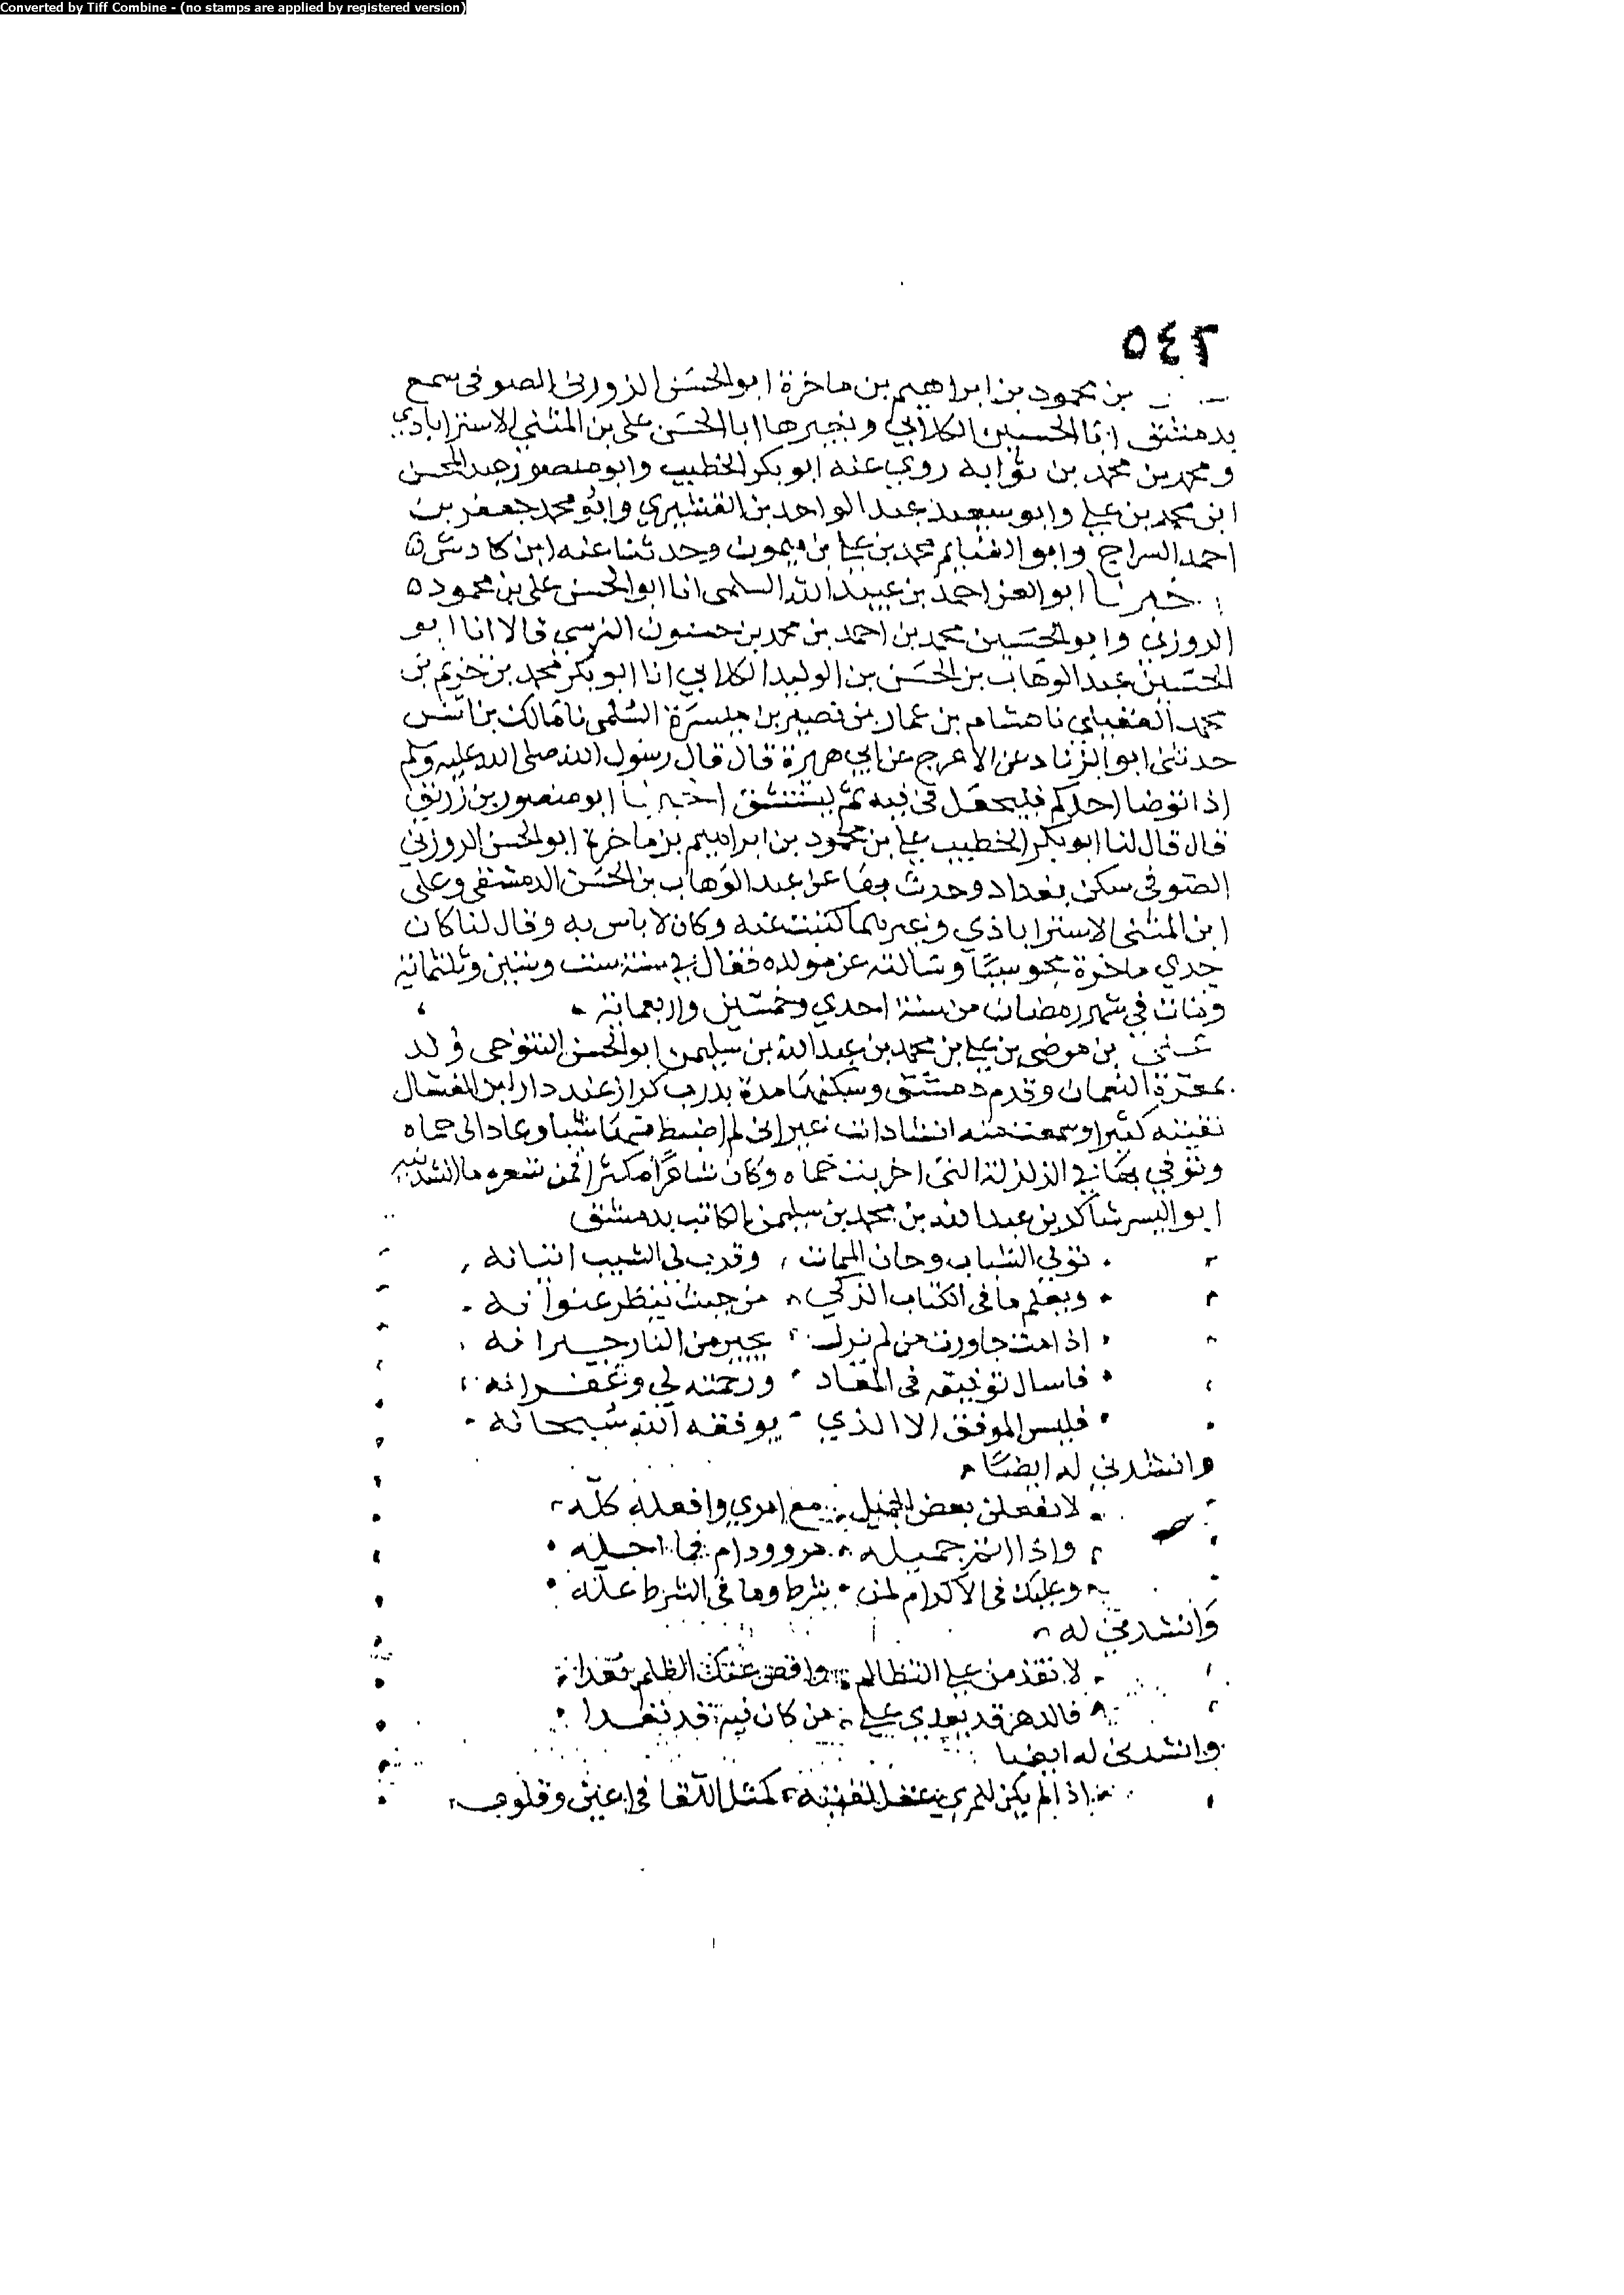 Converted by Tiff Combine - (no stamps are applied by registered version)
٥٤٢
بن محمود بن ابراهيم بن ماخرة ابو الحسن الزوزني الصوفي سمع
بدمشق ابا الحسين الكلابي وبغيرها ابا الحسن علي بن المثني الاستراباذي
ومحمد بن محمد بن ثوابه روي عنه ابو بكر الخطيب وابو منصور عبد المحسن
ابن محمد بن علي وابو سعيد عبد الواحد بن القشيري وابو محمد جعفر بن
احمد السراج وابو الغنايم محمد بن علي بن ميمون وحدثنا عنه ابن كادش ه
اخبرنا ابو العز احمد بن عبيد الله السلمي انا ابو الحسن علي بن محمود ه
الزوزني وابو الحسين محمد بن احمد بن محمد بن حسنون النرسي قالا انا ابو
الحسين عبد الوهاب بن الحسن بن الوليد الكلابي انا ابو بكر محمد بن خريم بن
محمد العقيلي نا هشام بن عمار بن نصير بن ميسرة السلمي نا مالك بن انس
حدثني ابو الزناد عن الاعرج عن ابي هريرة قال قال رسول الله صلى الله عليه وسلم
اذا توضا احدكم فليجعل في فيه ثم ليستنشق اخبرنا ابو منصور بن زريق
قال قال لنا ابو بكر الخطيب علي بن محمود بن ابراهيم بن ماخرة ابو الحسن الزوزني
الصوفي سكن بغداد وحدث بها عن عبد الوهاب بن الحسن الدمشقي وعلي
ابن المثني الاستراباذي وغيرهما كتبت عنه وكان لا باس به وقال لنا كان
جدي ماخرة مجوسيا وسالته عن مولده فقال في سنة ست وستين وثلثماية
ومات في شهر رمضان من سنة احدي وخمسين واربعماية
علي بن مرضي بن علي بن محمد بن عبد الله بن سليمن ابو الحسن التنوخي ولد
بمعرة النعمان وقدم دمشق وسكنها مدة بدرب كراز عند دار ابن الغسال
لقيته كثيرا وسمعت منه انشادات غير اني لم اضبط منها شيا وعاد الى حماه
وتوفي بها في الزلزلة التي اخربت حماه وكان شاعرا مكثرا فمن شعره ما انشدنيه
ابو اليسر شاكر بن عبد الله بن محمد بن سليمن الكاتب بدمشق
تولي الشباب وحان الممات وقرب لي الشيب اتيانه
ويعلم ما في الكتاب الذكي من حيث ينظر عنوانه
اذا مت جاورت من لم يزل يجير من النار جيرانه
فاسال توفيقه في المعاد ورحمته لي وغفرانه
فليس الموفق الا الذي يوفقه الله سبحانه
وانشدني له ايضا
لا تفعلن بعض الجميل مع امري وافعله كله
واذا جميله فيما احله
وعليك في الاكرام لمن بشرط وما في الشرط عله
وانشدني له
لا تقدمن علي التظالم وافض عنك الظلم
فالدهر قد يعدي علي من كان فيه قد تعدا
وانشدني له ايضا
اذا لم يكن للمري عقل لقيته كمثل اللقا في اعين وقلوب